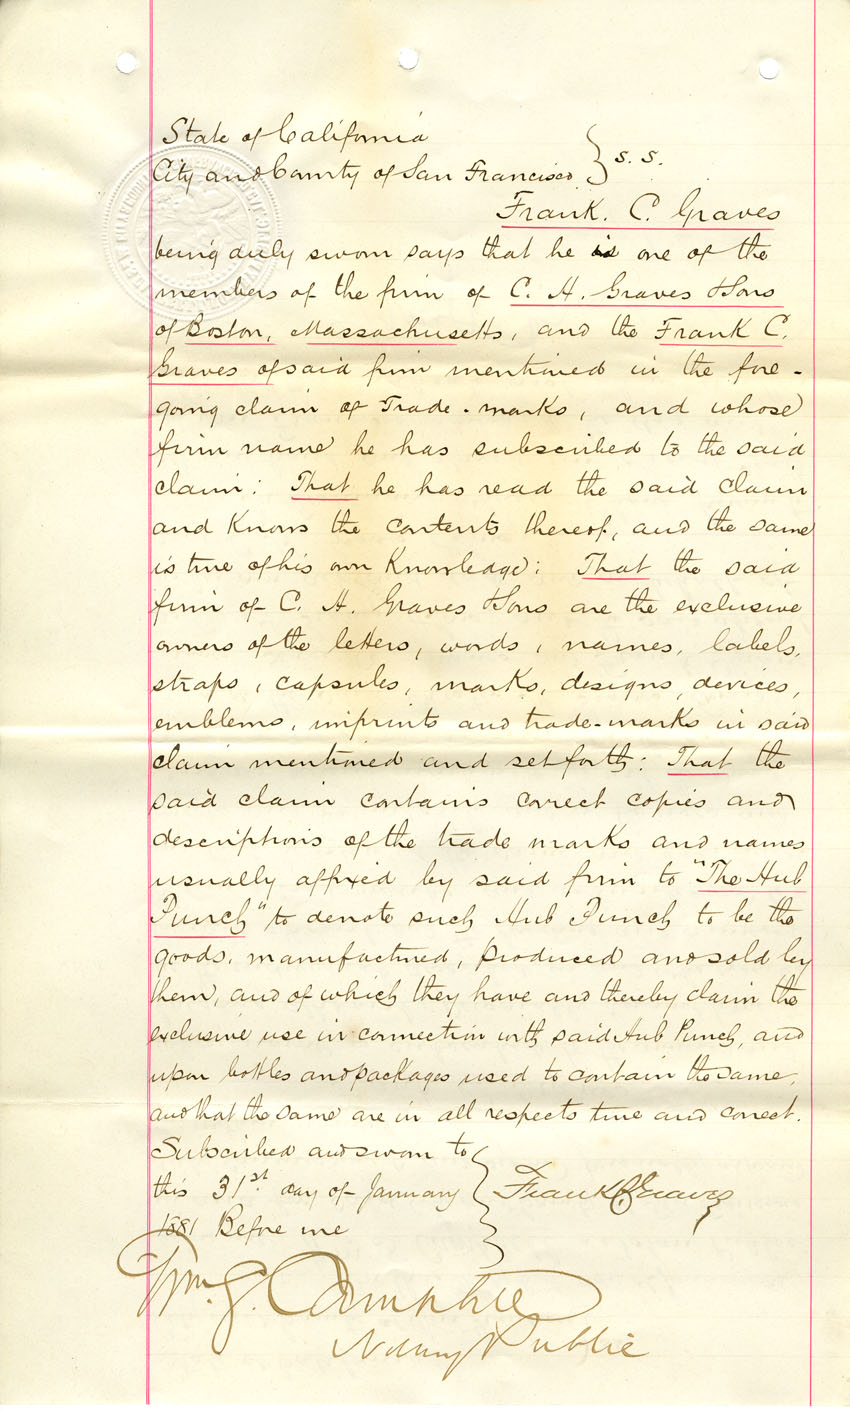 State of California
City and County of San Francisco } S. S.
Frank. C. Graves
being duly sworn says that he is one of the
members of the firm of C. H. Graves & Sons
of Boston, Massachusetts, and the Frank C.
Graves of said firm mentioned in the fore-
going claim of Trade-marks, and whose
firm name he has subscribed to the said
claim: That he has read the said claim
and knows the contents thereof, and the same
is true of his own knowledge: That the said
firm of C. H. Graves & Sons are the exclusive
owners of the letters, words, names, labels,
straps, capsules, marks, designs, devices,
emblems, imprints and trade-marks in said
claim mentioned and set forth: That the
said claim contains correct copies and
descriptions of the trade marks and names
usually affixed by said firm to "The Hub
Punch" to denote such Hub Punch to be the
goods, manufactured, produced and sold by
them, and of which they have and thereby claim the
exclusive use in connection with said Hub Punch, and
upon bottles and packages used to contain the same,
and that the same are in all respects true and correct.
Subscribed and sworn to
this 31st. day of January } Frank C Graves
1881 Before me
Wm. G.
Notary Public